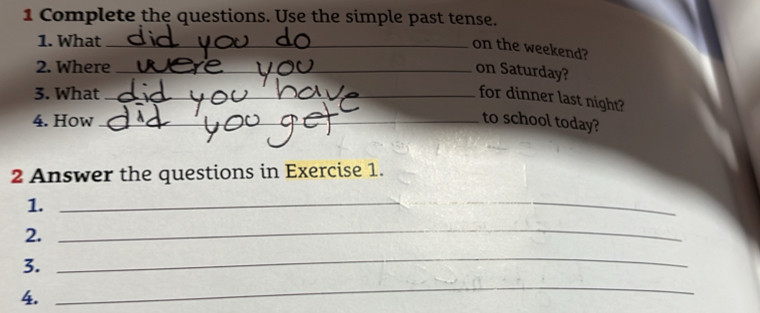 1 Complete the questions. Use the simple past tense.
1. What did you do on the weekend?
2. Where were you on Saturday?
3. What did you have for dinner last night?
4. How did you get to school today?
2 Answer the questions in Exercise 1.
1.
2.
3.
4.